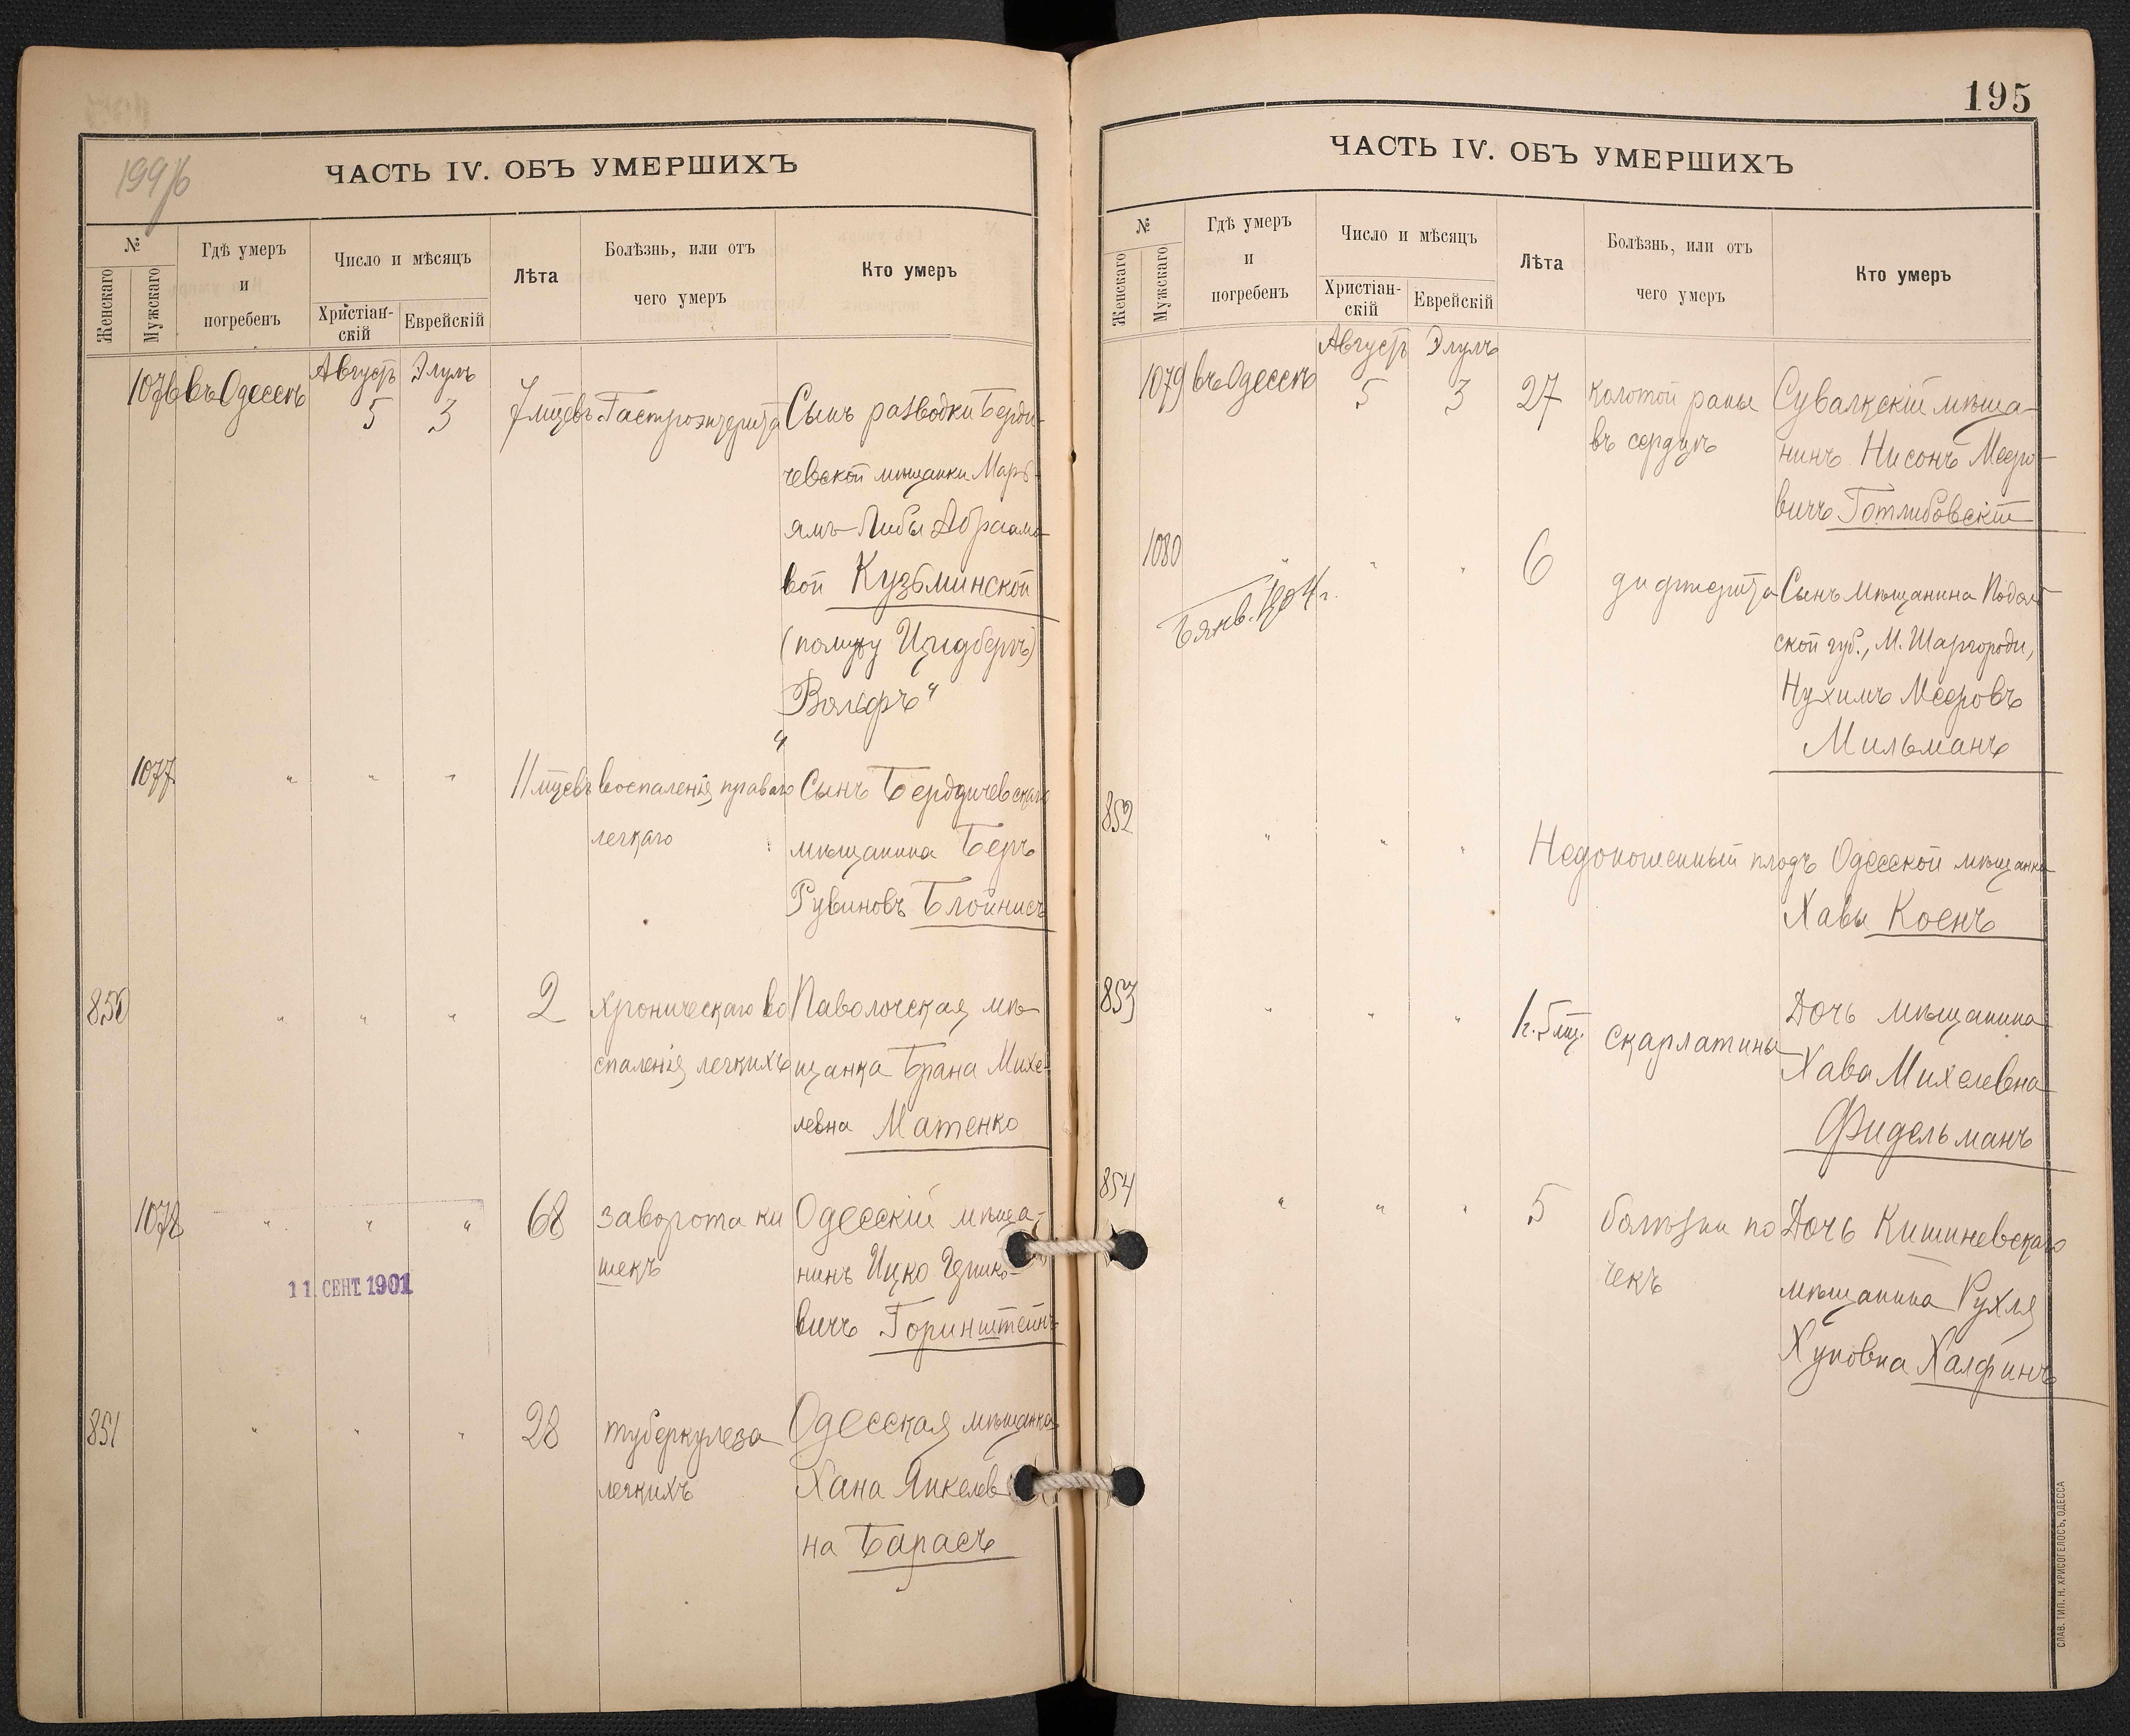 195
1997/6
ЧАСТЬ IV. ОБЪ УМЕРШИХЪ
№
Женскаго
Мужскаго
Гдѣ умеръ
и
погребенъ
Число и мѣсяцъ
Христіан-
скій
Еврейскій
Лѣта
Болѣзнь, или отъ
чего умеръ
Кто умеръ
Августъ Элулъ
1076 въ Одессѣ 5 3 7 мцевъ Гастроэнтерита Сынъ разводки Берди-
чевской мѣщанки Марь-
ямъ-Либы Абрамо-
вой Кузьминской
(по мужу
Вольфъ"
1077 " " " 11 мцевъ воспаленія праваго Сынъ Бердичевскаго
легкаго мѣщанина Беръ
Рувиновъ Блойнисъ
850 " " " 2 хроническаго во Паволочская мѣ-
спаленія легкихъ щанка Брана Михе-
левна Матенко
1078 " " " 68 заворота ки Одесскій мѣща-
шекъ нинъ Ицко
вичъ Горинштейнъ
11 СЕНТ. 1901
851 " " " 28 туберкулеза Одесская мѣщанка
легкихъ Хана Янкелев
на Барасъ
ЧАСТЬ IV. ОБЪ УМЕРШИХЪ
№
Женскаго
Мужскаго
Гдѣ умеръ
и
погребенъ
Число и мѣсяцъ
Христіан-
скій
Еврейскій
Лѣта
Болѣзнь, или отъ
чего умеръ
Кто умеръ
Августъ Элулъ
1079 въ Одессѣ 5 3 27 колотой раны Сувалкскій мѣща-
въ сердцѣ нинъ Нисонъ Мееро-
вичъ Готлибовскій
1080 " " " 6 дифтерита Сынъ мѣщанина Подоль
янв. 1904 г.
ской губ., М. Шаргороди,
Нухимъ Мееровъ
Мильманъ
852 " " " Недоношенный плодъ Одесской мѣщанки
Хавы Коенъ
853 " " " 1 г. 5 мц. скарлатины Дочь мѣщанина
Хава Михелевна
Фидельманъ
854 " " " 5 болѣзни по Дочь Кишиневскаго
чекъ мѣщанина Рухля
Хуновна Халфинъ
СЛАВ. ТИП. Н. ХРИСОГЕЛОСЪ, ОДЕССА